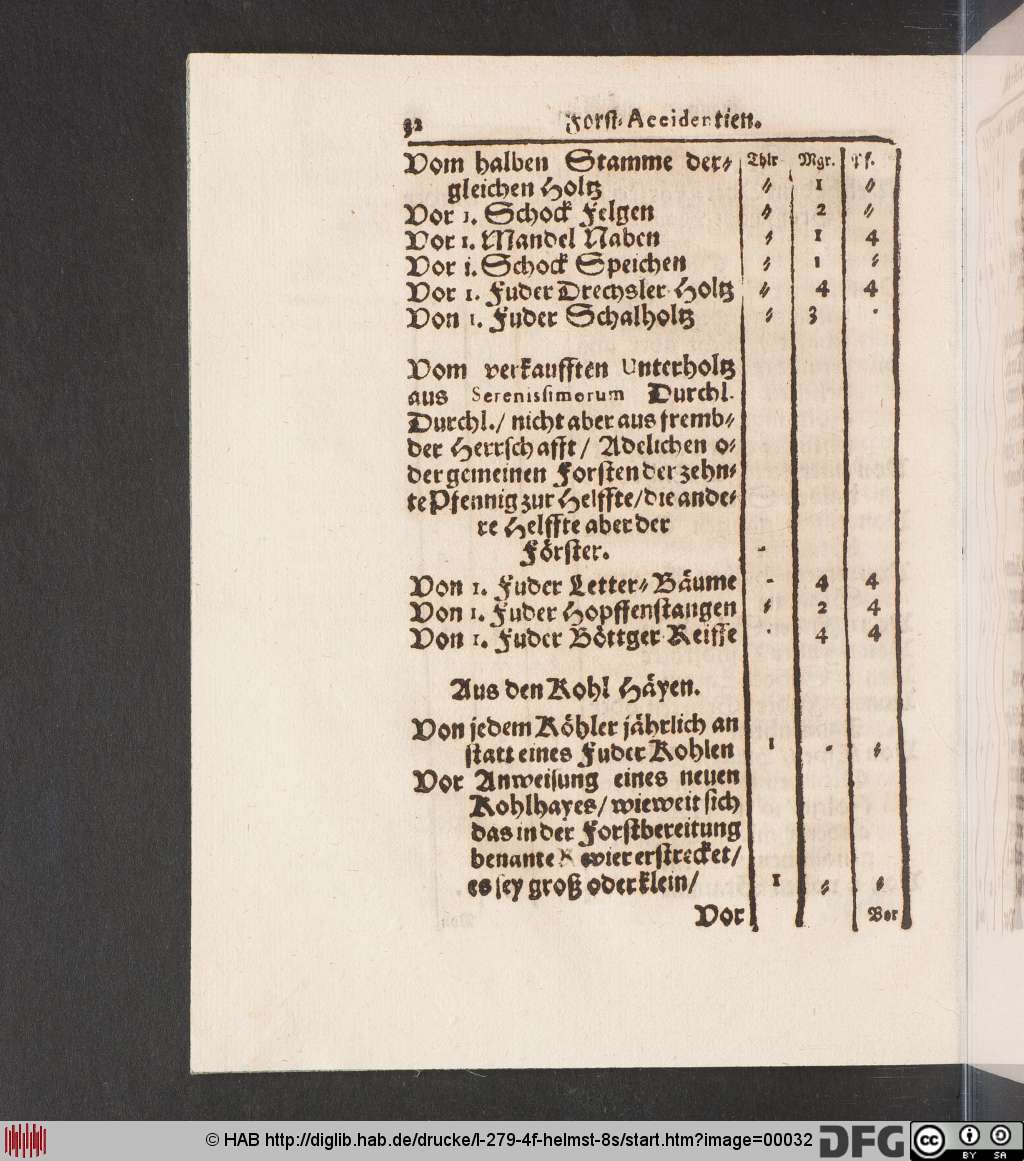 32 Forst-Accidentien.
Vom halben Stamme der⸗ Thlr Mgr. Pf.
gleichen Holtz ⸗ 1 ⸗
Vor 1. Schock Felgen ⸗ 2 ⸗
Vor 1. Mandel Naben ⸗ 1 4
Vor 1. Schock Speichen ⸗ 1 ⸗
Vor 1. Fuder Drechsler Holtz ⸗ 4 4
Von 1. Fuder Schalholtz ⸗ 3 ·
Vom verkaufften Unterholtz
aus Serenissimorum Durchl.
Durchl./ nicht aber aus fremb⸗
der Herrschafft/ Adelichen o⸗
der gemeinen Forsten der zehn⸗
te Pfennig zur Helffte/ die ande⸗
re Helffte aber der
Förster. -
Von 1. Fuder Letter⸗Bäume - 4 4
Von 1. Fuder Hopffenstangen ⸗ 2 4
Von 1. Fuder Böttger Reiffe · 4 4
Aus den Kohl Häyen.
Von jedem Köhler jährlich an
statt eines Fuder Kohlen 1 - ⸗
Vor Anweisung eines neuen
Kohlhayes/ wie weit sich
das in der Forstbereitung
benante Rewier erstrecket/
es sey groß oder klein/ 1 ⸗ ⸗
Vor Vor
© HAB http://diglib.hab.de/drucke/l-279-4f-helmst-8s/start.htm?image=00032 DFG cc BY SA